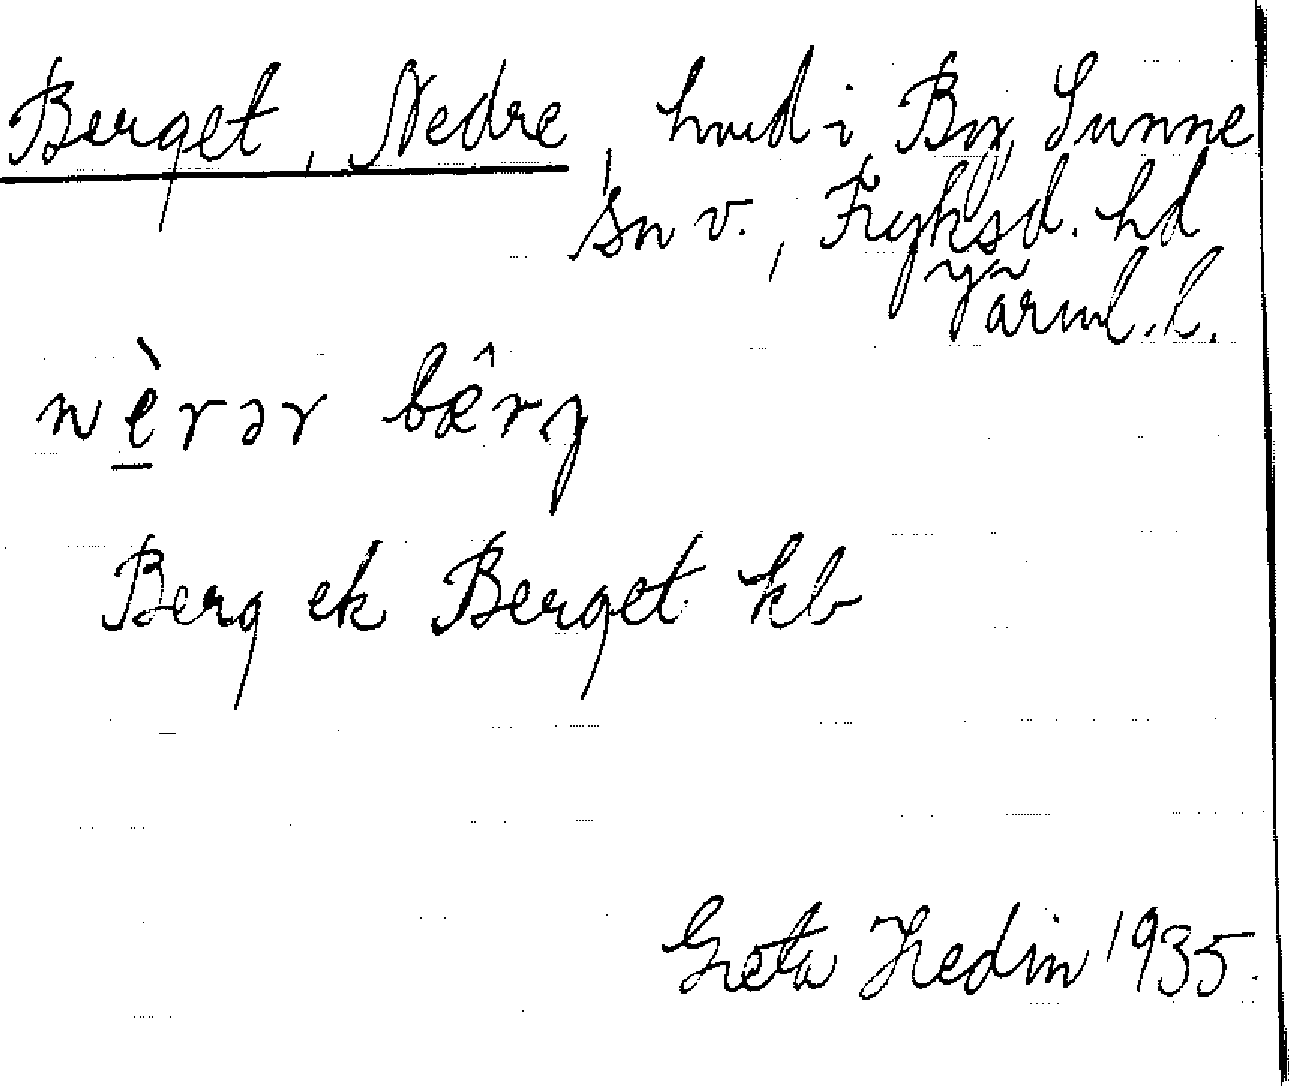 Berget, Nedre, hmd i By, Sunne
sn v., Fryksd. hd
Värml. l.
nè̱rər bærg
Berg ek Berget kb
Greta Hedin 1935.